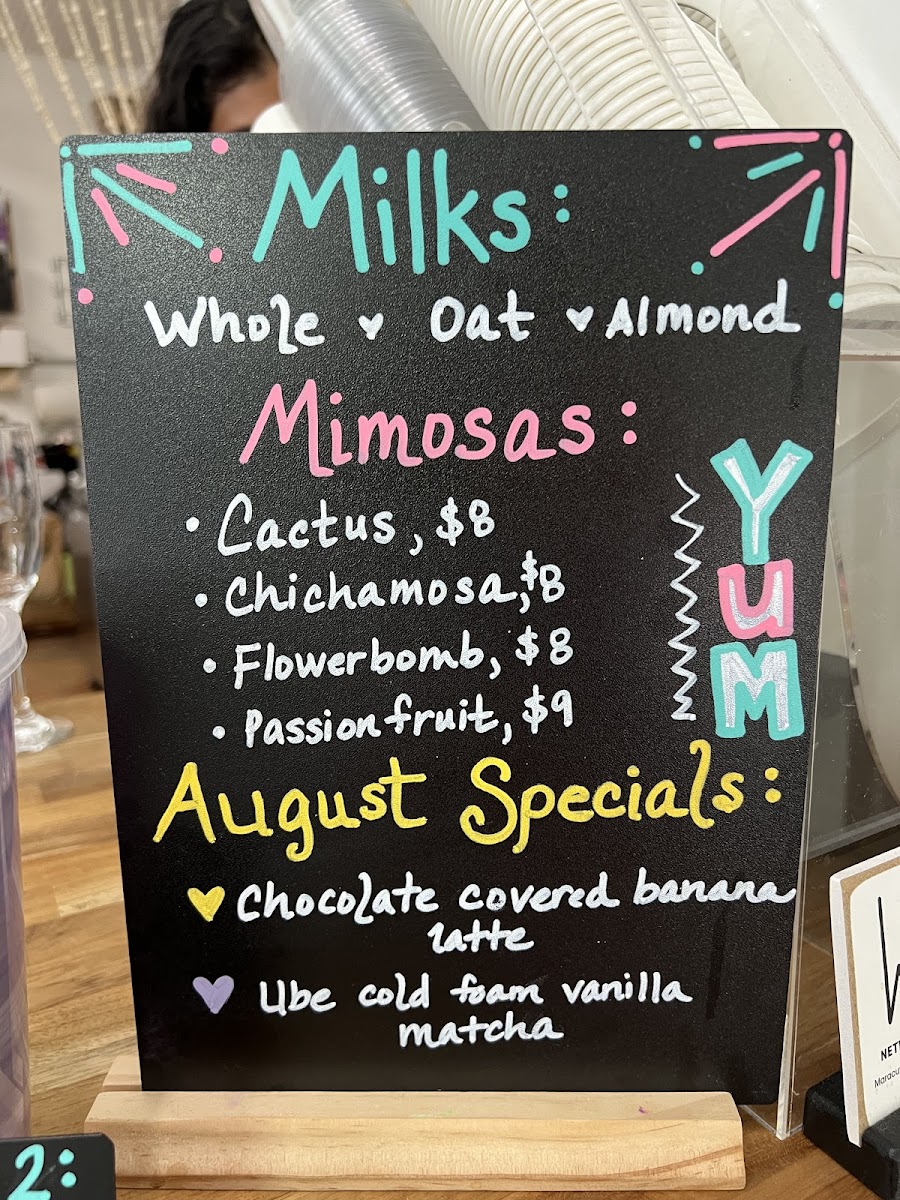 Milks:
Whole ♥ Oat ♥ Almond
Mimosas:
• Cactus, $8
• Chichamosa, $8
• Flowerbomb, $8
• Passionfruit, $9
YUM
August Specials:
♥ Chocolate covered banana
latte
♥ Ube cold foam vanilla
matcha
2: